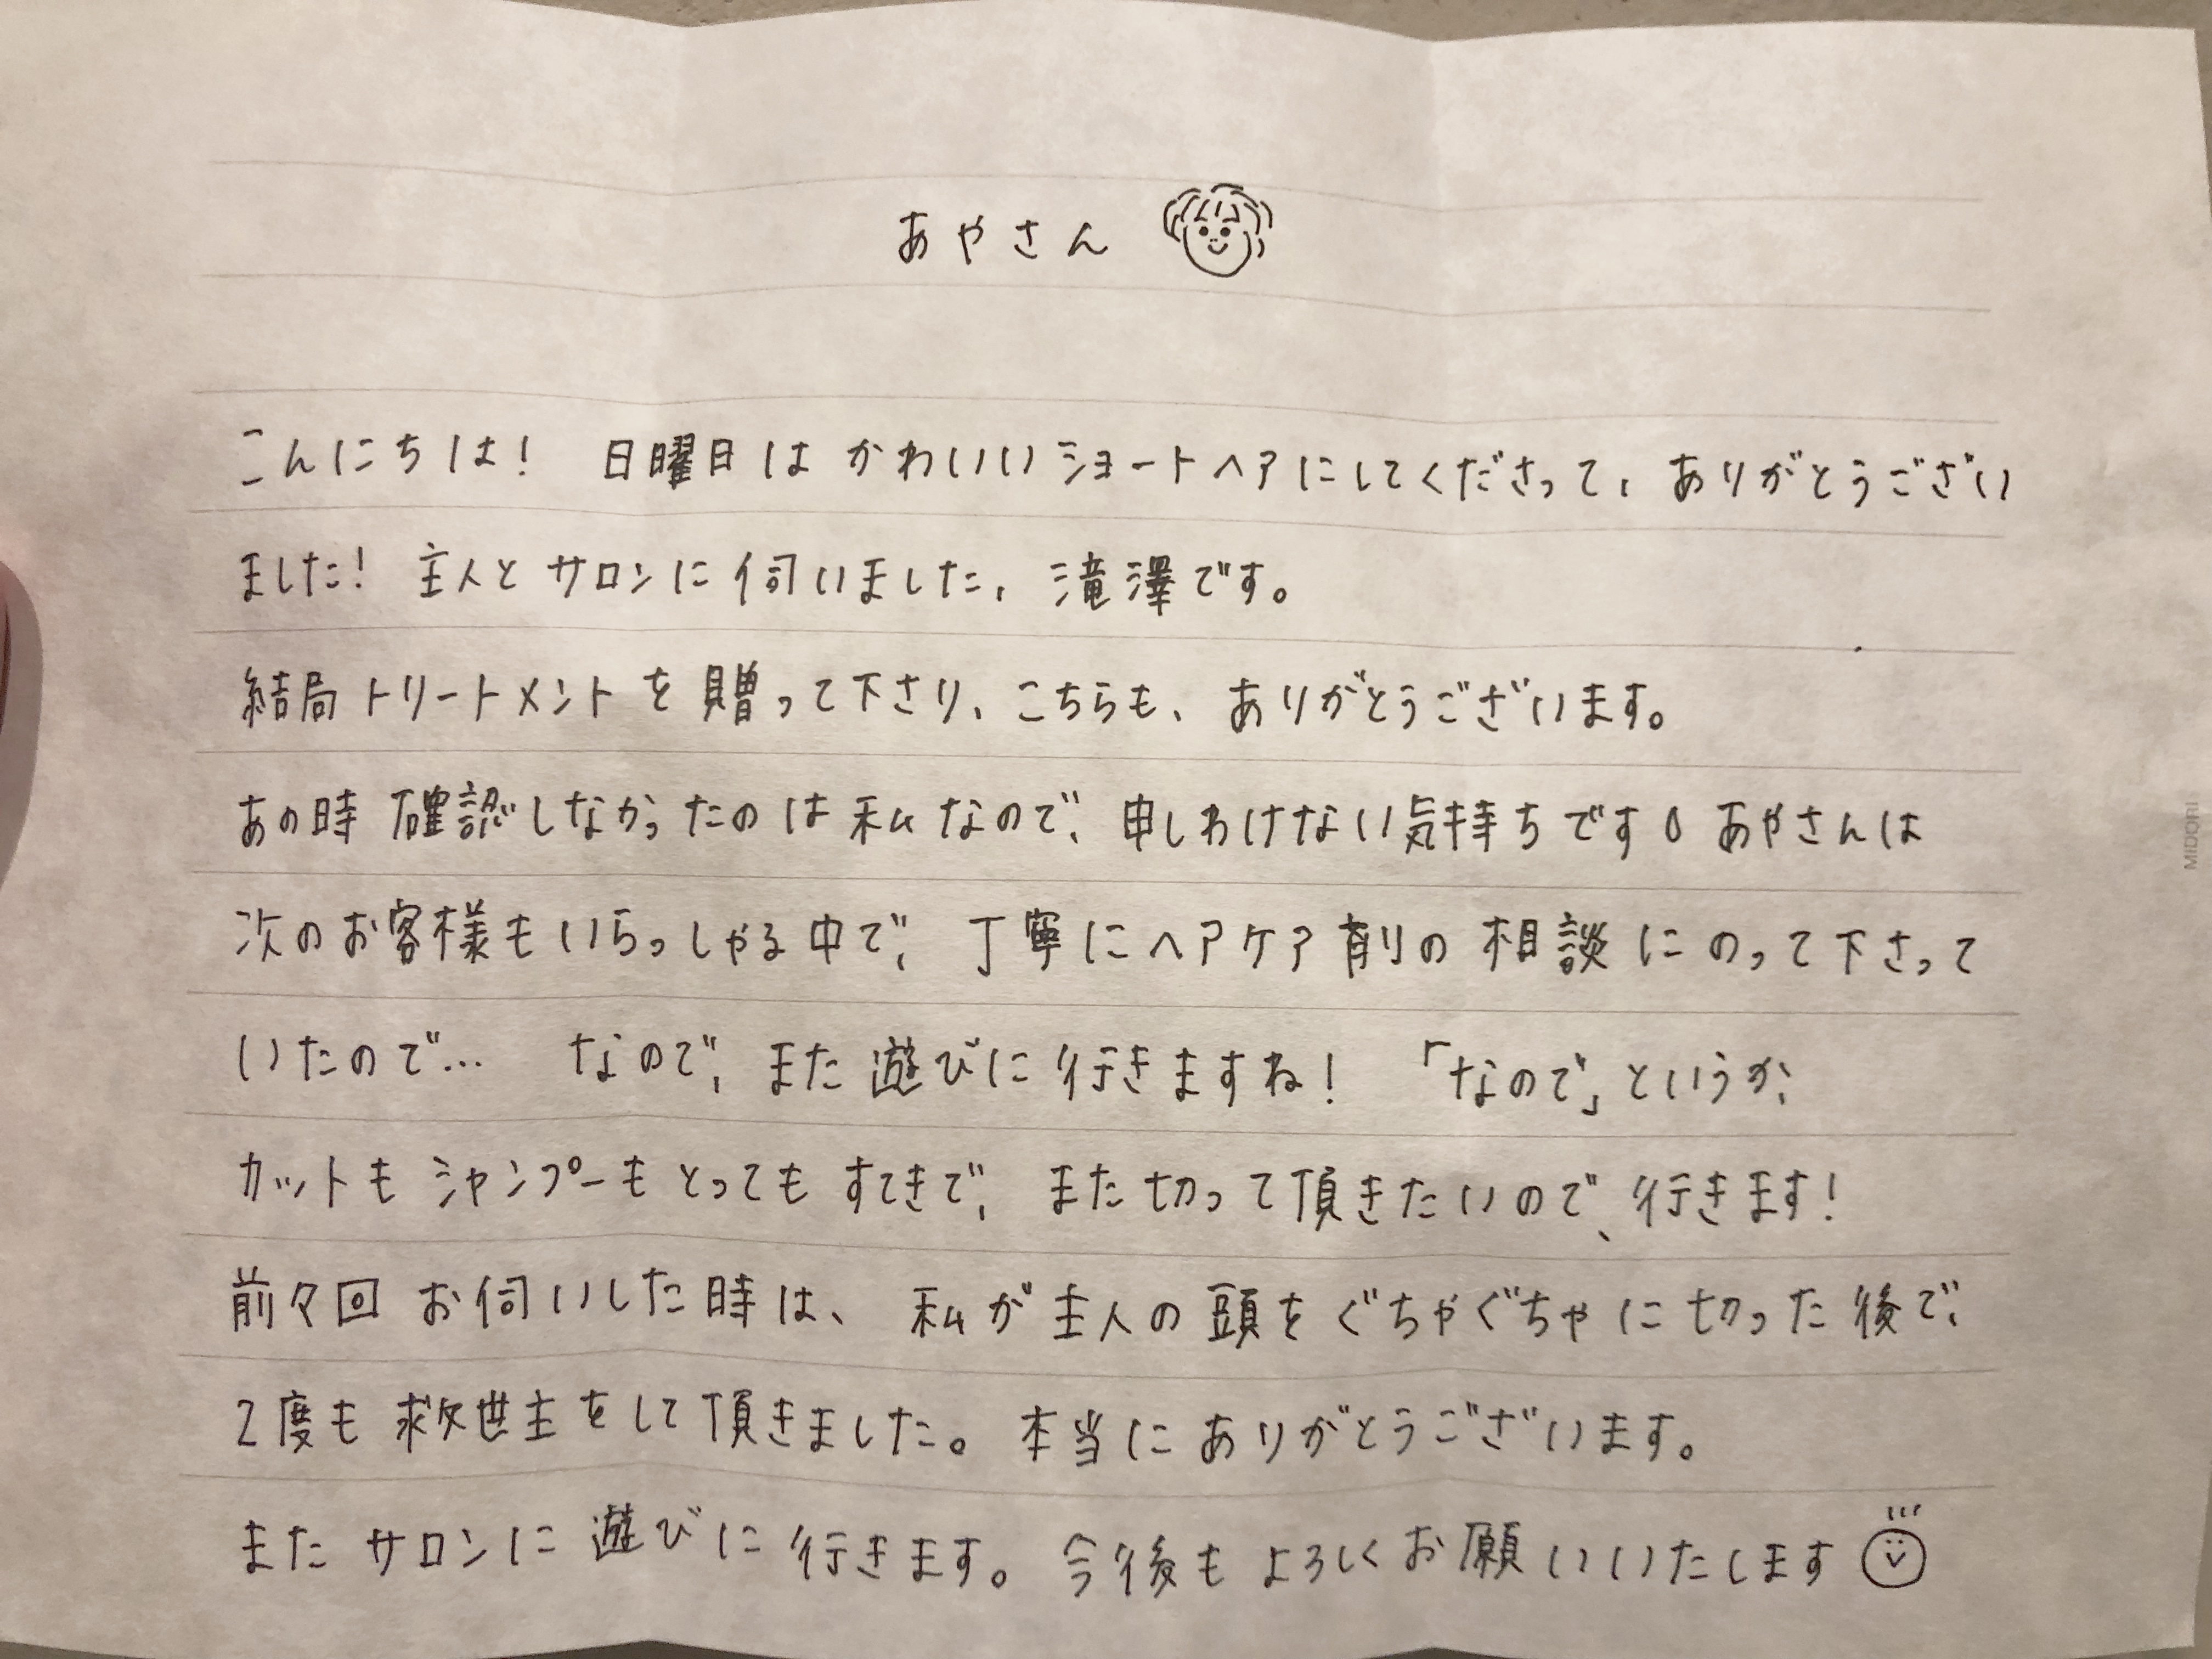 あやさん
こんにちは！ 日曜日は かわいいショートヘアにしてくださって、ありがとうござい
ました！ 主人と サロンに伺いました、滝澤です。
結局トリートメントを贈って下さり、こちらも、ありがとうございます。
あの時 確認しなかったのは私なので、申しわけない気持ちです。あやさんは
次のお客様もいらっしゃる中で、丁寧にヘアケア剤の相談にのって下さって
いたので… なので、また遊びに行きますね！ 「なので」というか、
カットもシャンプーもとってもすてきで、また切って頂きたいので、行きます！
前々回お伺いした時は、私が主人の頭をぐちゃぐちゃに切った後で、
2度も救世主をして頂きました。本当にありがとうございます。
またサロンに遊びに行きます。今後もよろしくお願いいたします
MIDORI